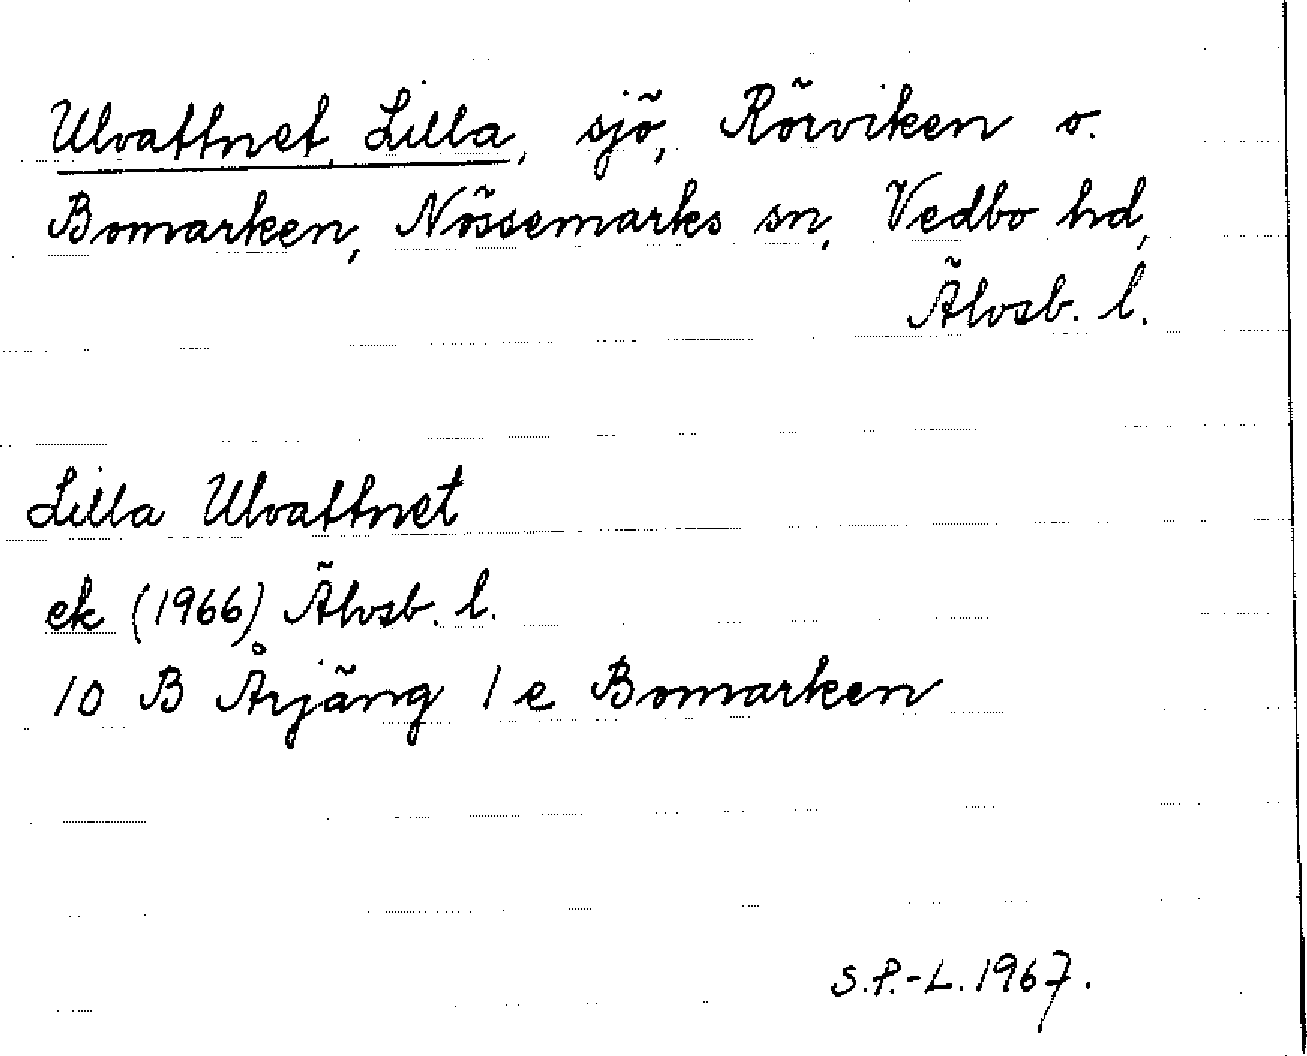 Ulvattnet, Lilla, sjö, Rörviken o.
Bomarken, Nössemarks sn, Vedbo hd,
Älvsb. l.
Lilla Ulvattnet
ek (1966) Älvsb. l.
10 B Årjäng 1 e Bomarken
S.P.-L. 1967.